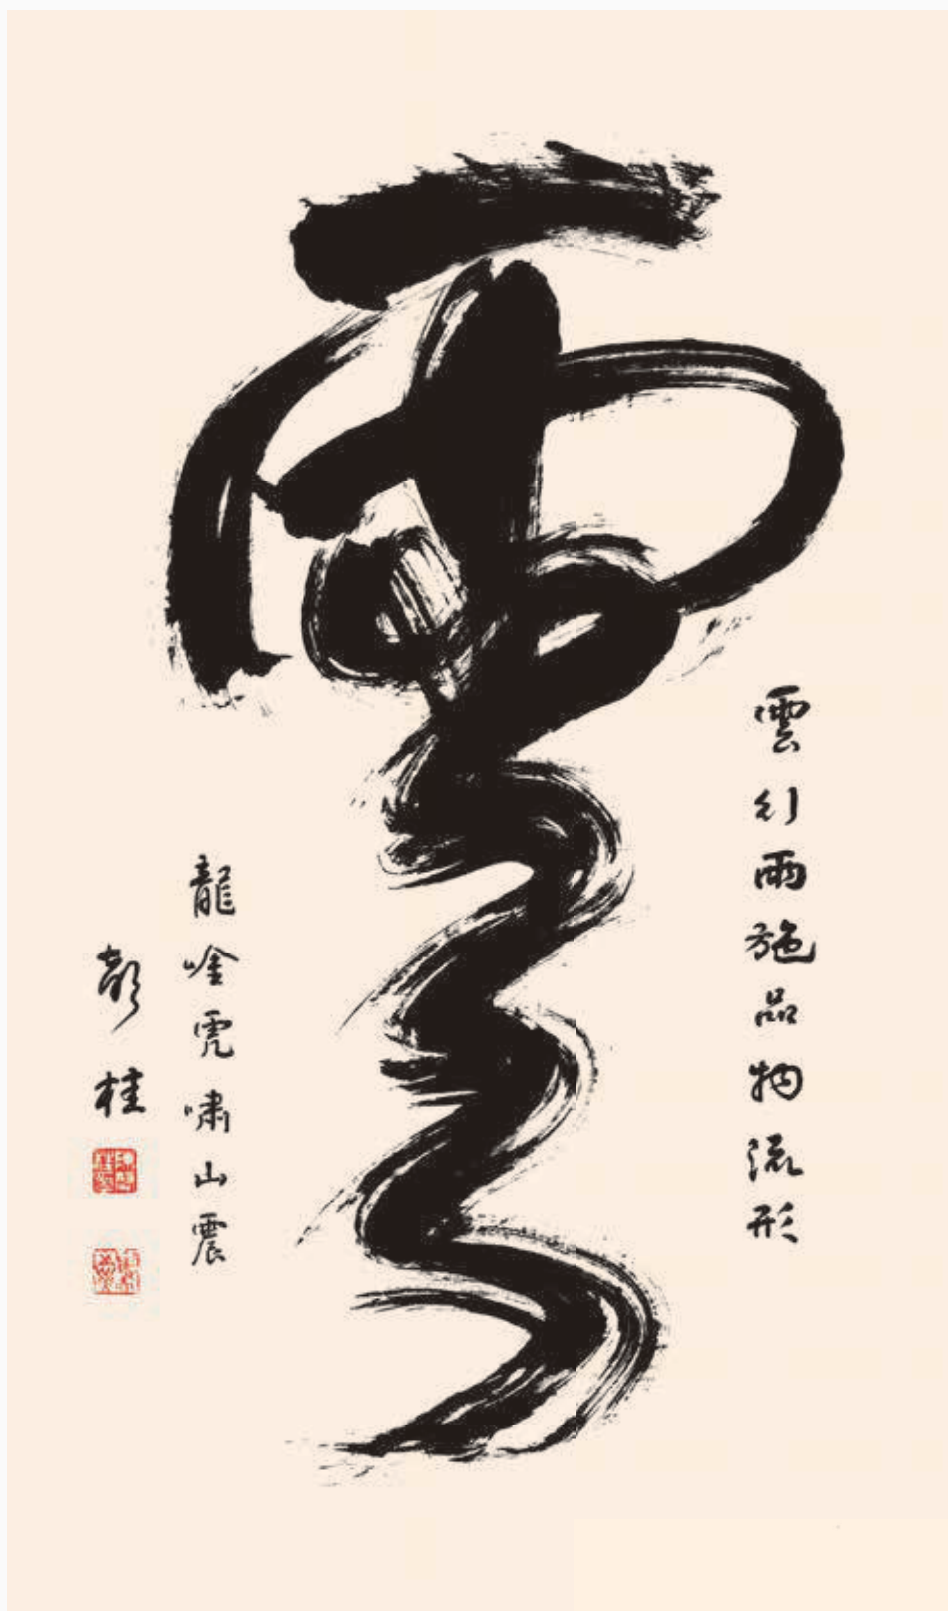 雲行雨施品物流形
龍唫虎嘯山震
桂